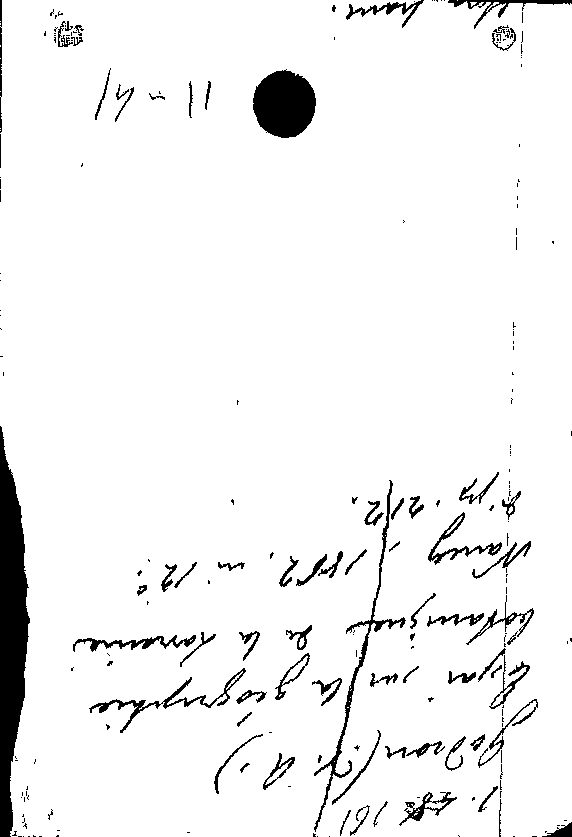 161
Godron (D. A.)
Essai sur la géographie
botanique de la Lorraine
Nancy, 1862, in 12°.
pp. 212.
11 - 41